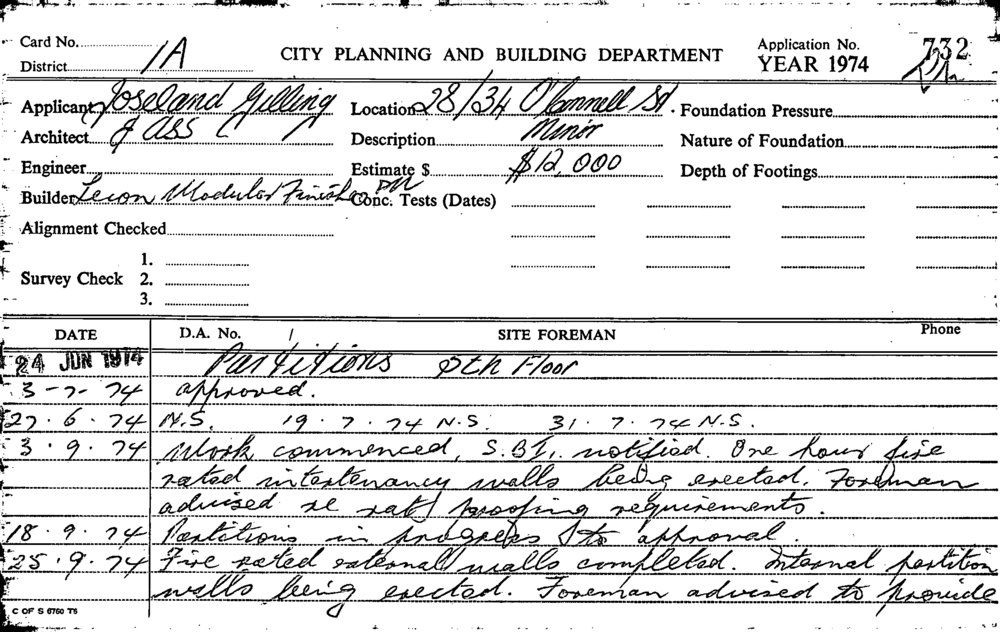 Card No.
District 1A
CITY PLANNING AND BUILDING DEPARTMENT
Application No. 732
YEAR 1974
Applicant Joseland Gilling
Location 28/34 O'Connell St.
Foundation Pressure
Architect & ASS
Description Minor
Nature of Foundation
Engineer
Estimate $ $12,000
Depth of Footings
Builder Lecon Modular
Conc. Tests (Dates)
Alignment Checked
Survey Check 1.
2.
3.
DATE D.A. No. / SITE FOREMAN Phone
24 JUN 1974 Partitions Floor
3-7-74 approved.
27.6.74 N.S. 19.7.74 N.S. 31.7.74 N.S.
3.9.74 Work commenced, S.B.I. notified. One hour fire
rated intertenancy walls being erected. Foreman
advised re rat proofing requirements.
18.9.74 Partitions in progress to approval.
25.9.74 Fire rated external walls completed. Internal partition
walls being erected. Foreman advised to provide
C OF S 6750 T5